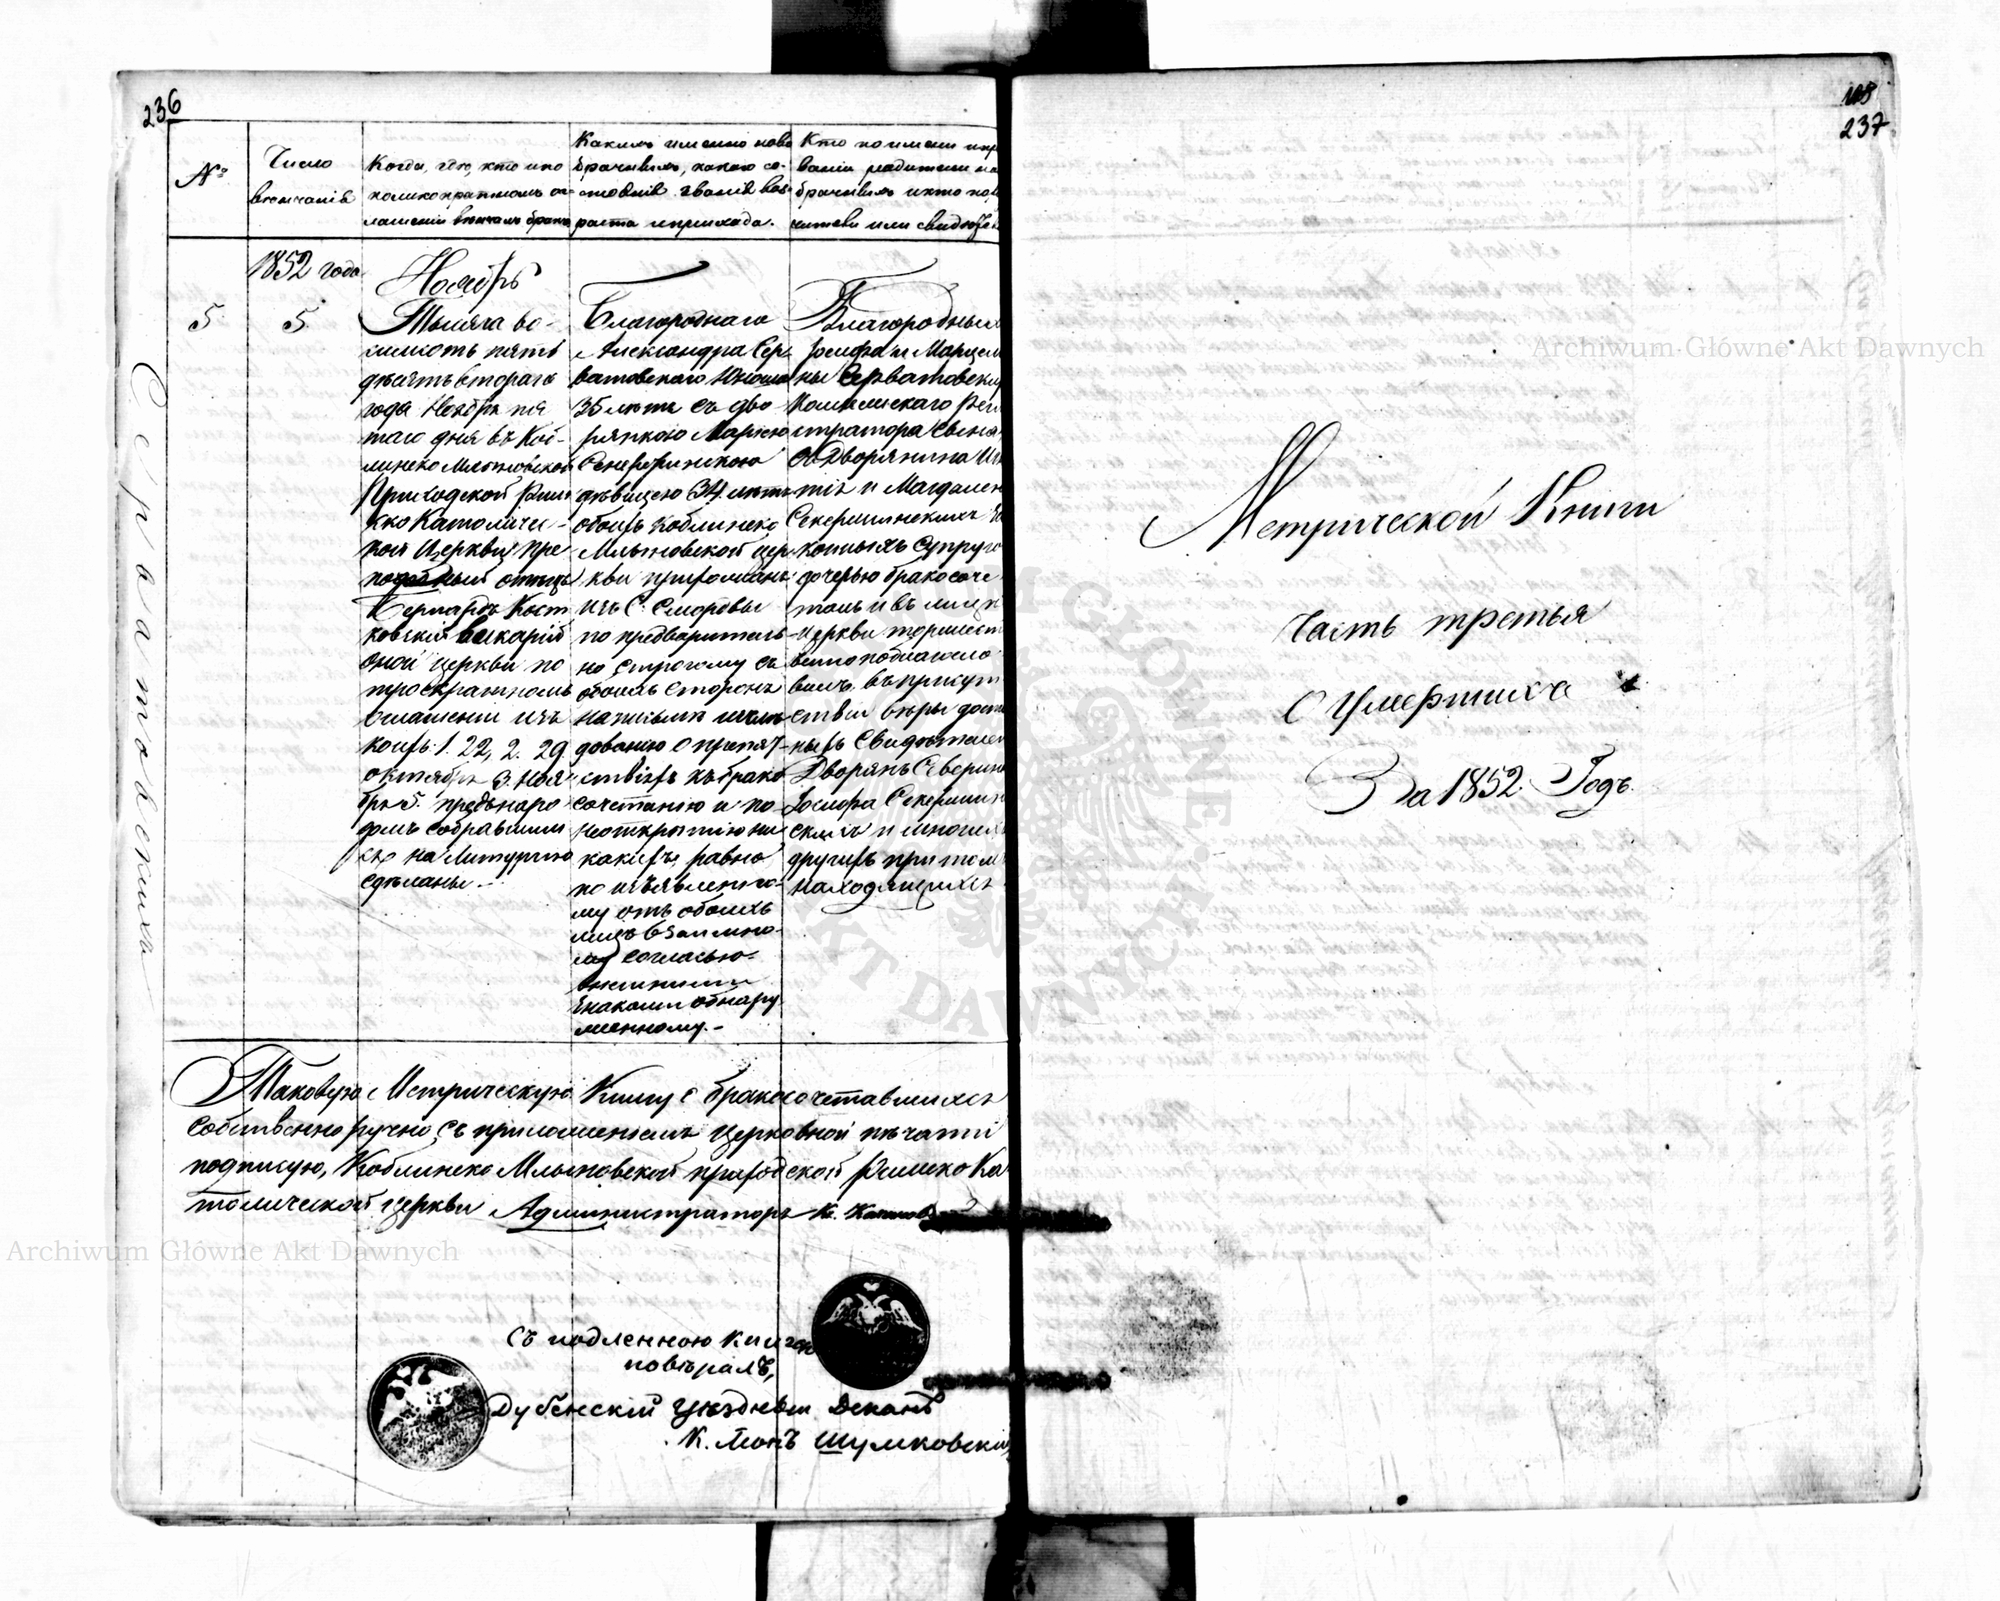 236
№
Число
венчанія
Когда, гдѣ, кто и по
коликократномъ ог-
лашеніи вѣнчалъ бракъ
Какихъ именно ново
брачившихъ, какого со-
стоянія званія воз-
раста и прихода.
Кто по имени и пр
званіи родители но
и кто по
или свидѣте
1852 года
Ноябрь
5
5
Серватовскихъ
Тысяча во-
симсотъ пять
десятъ втораго
года Ноября пя
таго дня въ Коб-
линско Млыновской
Приходской Рим-
ско Католичес-
кой Церкви пре
отецъ
Бернардъ
Викарій
оной церкви по
троекратномъ
оглашеніи изъ
коихъ 1. 22, 2. 29
октября 3. Ноя
бря 5. предъ наро
домъ собравшим
ся на Литургію
сдѣланы.-
Благороднаго
Александра Сер
ватовскаго Юношу
35 летъ съ дво
рянкою Маріею
Секержинскою
дѣвицею 34 летъ
обоихъ Коблинско
Млыновской цер
кви прихожанъ
изъ С. Смордвы
по предваритель-
но строгому съ
обоихъ Сторонъ
на письмѣ изслѣ
дованію о препят-
ствіяхъ къ брако
сочетанію и по
неоткрытію ни
какихъ, равно
по изъявленно-
му отъ обоихъ
лицъ взаимно-
му согласію
внешними
знаками обнару
женному.-
Благородныхъ
Іосифа и Марцел
ны Серватовских
Регис
тратора сына
съ Дворянина Иг
тія и Магдален
Секержинскихъ За
конныхъ Супруго
дочерью бракосоче
талъ и въ
Церкви торжест
венно благосло
вилъ въ присут
ствіи вѣры досто
ныхъ Свидѣтелей
Дворянъ Северина
Іосифа Секержин
скихъ и многихъ
другихъ при томъ
находящихся
Таковую Метрическую Книгу о бракосочетавшихся
собственноручно съ приложеніемъ церковной печати
подписую, Коблинско Млыновской приходской Римско Ка
толической Церкви Администраторъ К.
Съ подленною книгою
поверялъ,
Дубенскій Уѣздневый Деканъ
К. Леонъ Шумковскій
118
237
Метрической Книги
Часть третья
О Умершихъ
За 1852 Годъ.
Archiwum Główne Akt Dawnych
Archiwum Główne Akt Dawnych
GŁÓWNE AKT DAWNYCH